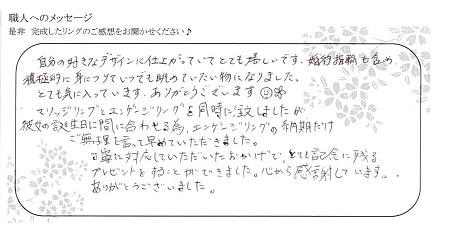 職人へのメッセージ
是非 完成したリングのご感想をお聞かせください♪
自分の好きなデザインに仕上がっていてとても嬉しいです。婚約指輪も含め
積極的に身につけていつでも眺めていたい物になりました。
とても気に入っています。ありがとうございます
マリッジリングとエンゲージリングを同時に注文しましたが
彼女の誕生日に間に合わせる為、エンゲージリングの納期だけ
ご無理を言って早めていただきました。
丁寧に対応していただいたおかげで、とても記念に残る
プレゼントをすることができました。心から感謝しています。
ありがとうございました。